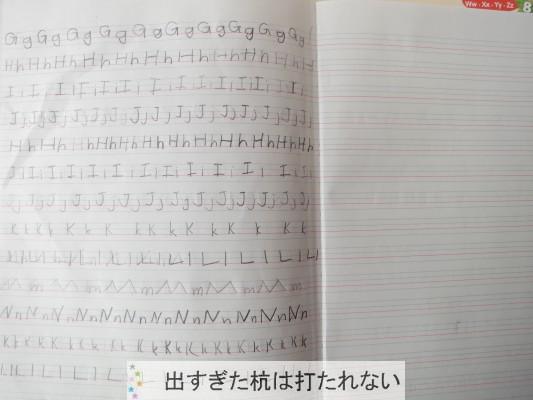 Ww・Xx・Yy・Zz 8
Gg Gg Gg Gg Gg Gg Gg Gg Gg Gg
Hh Hh Hh Hh Hh Hh Hh Hh Hh Hh Hh
Ii Ii Ii Ii Ii Ii Ii Ii Ii Ii
Jj Jj Jj Jj Jj Jj Jj Jj Jj Jj Jj
Hh Hh Hh Hh Hh Hh Hh Hh Hh Hh Hh
Ii Ii Ii Ii Ii Ii Ii Ii Ii
Jj Jj Jj Jj Jj Jj Jj Jj Jj Jj
Kk Kk Kk Kk Kk Kk Kk
L l L l L l L l L
M m M m M m M m M m
Nn Nn Nn Nn Nn Nn Nn Nn Nn Nn Nn
Kk Kk Kk Kk Kk Kk Kk Kk Kk Kk
L l L l L l
出すぎた杭は打たれない